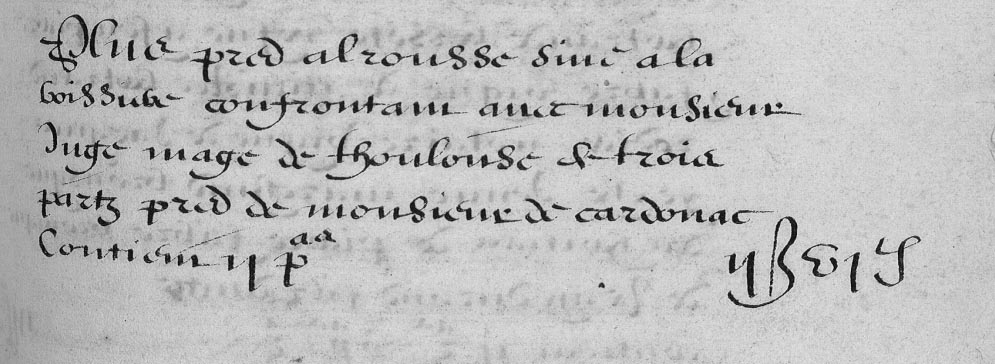 Plus pred al rousse sive a la
boissiere confrontant avec monsieur
Juge mage de thoulouse de trois
partz pred de monsieur de cardonac
Contient ij p
ij ß